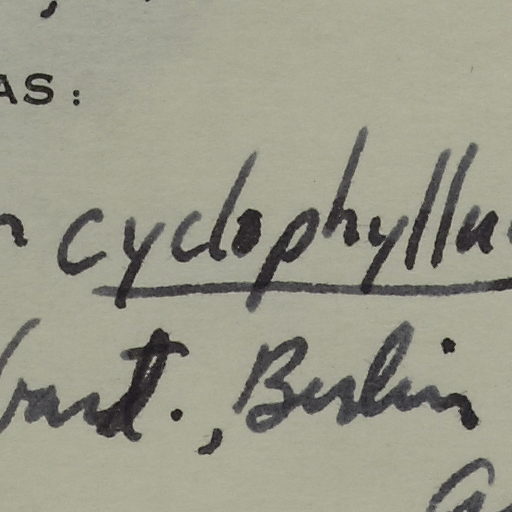 AS:
n cyclophyllu
rast., Berlin